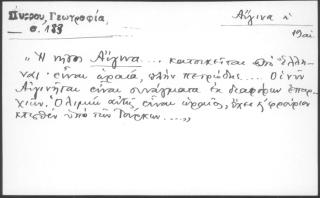 Πύρρου, Γεωγραφία,
σ. 183
Αἴγινα ἡ
19αἰ
„Ἡ νῆσος Αἴγινα... κατοικεῖται ἀπὸ ἕλλη-
ναι· εἶναι ὡραία, πλὴν πετρώδης... Οἱ νῦν
Αἰγινῆται εἶναι συνάγματα ἐκ διαφόρων ἐπαρ-
χιῶν. Ὁ λιμὴν αὐτῆς εἶναι ὡραῖος, ἔχει φρούριον
κτισθὲν ὑπὸ τῶν Τούρκων...."